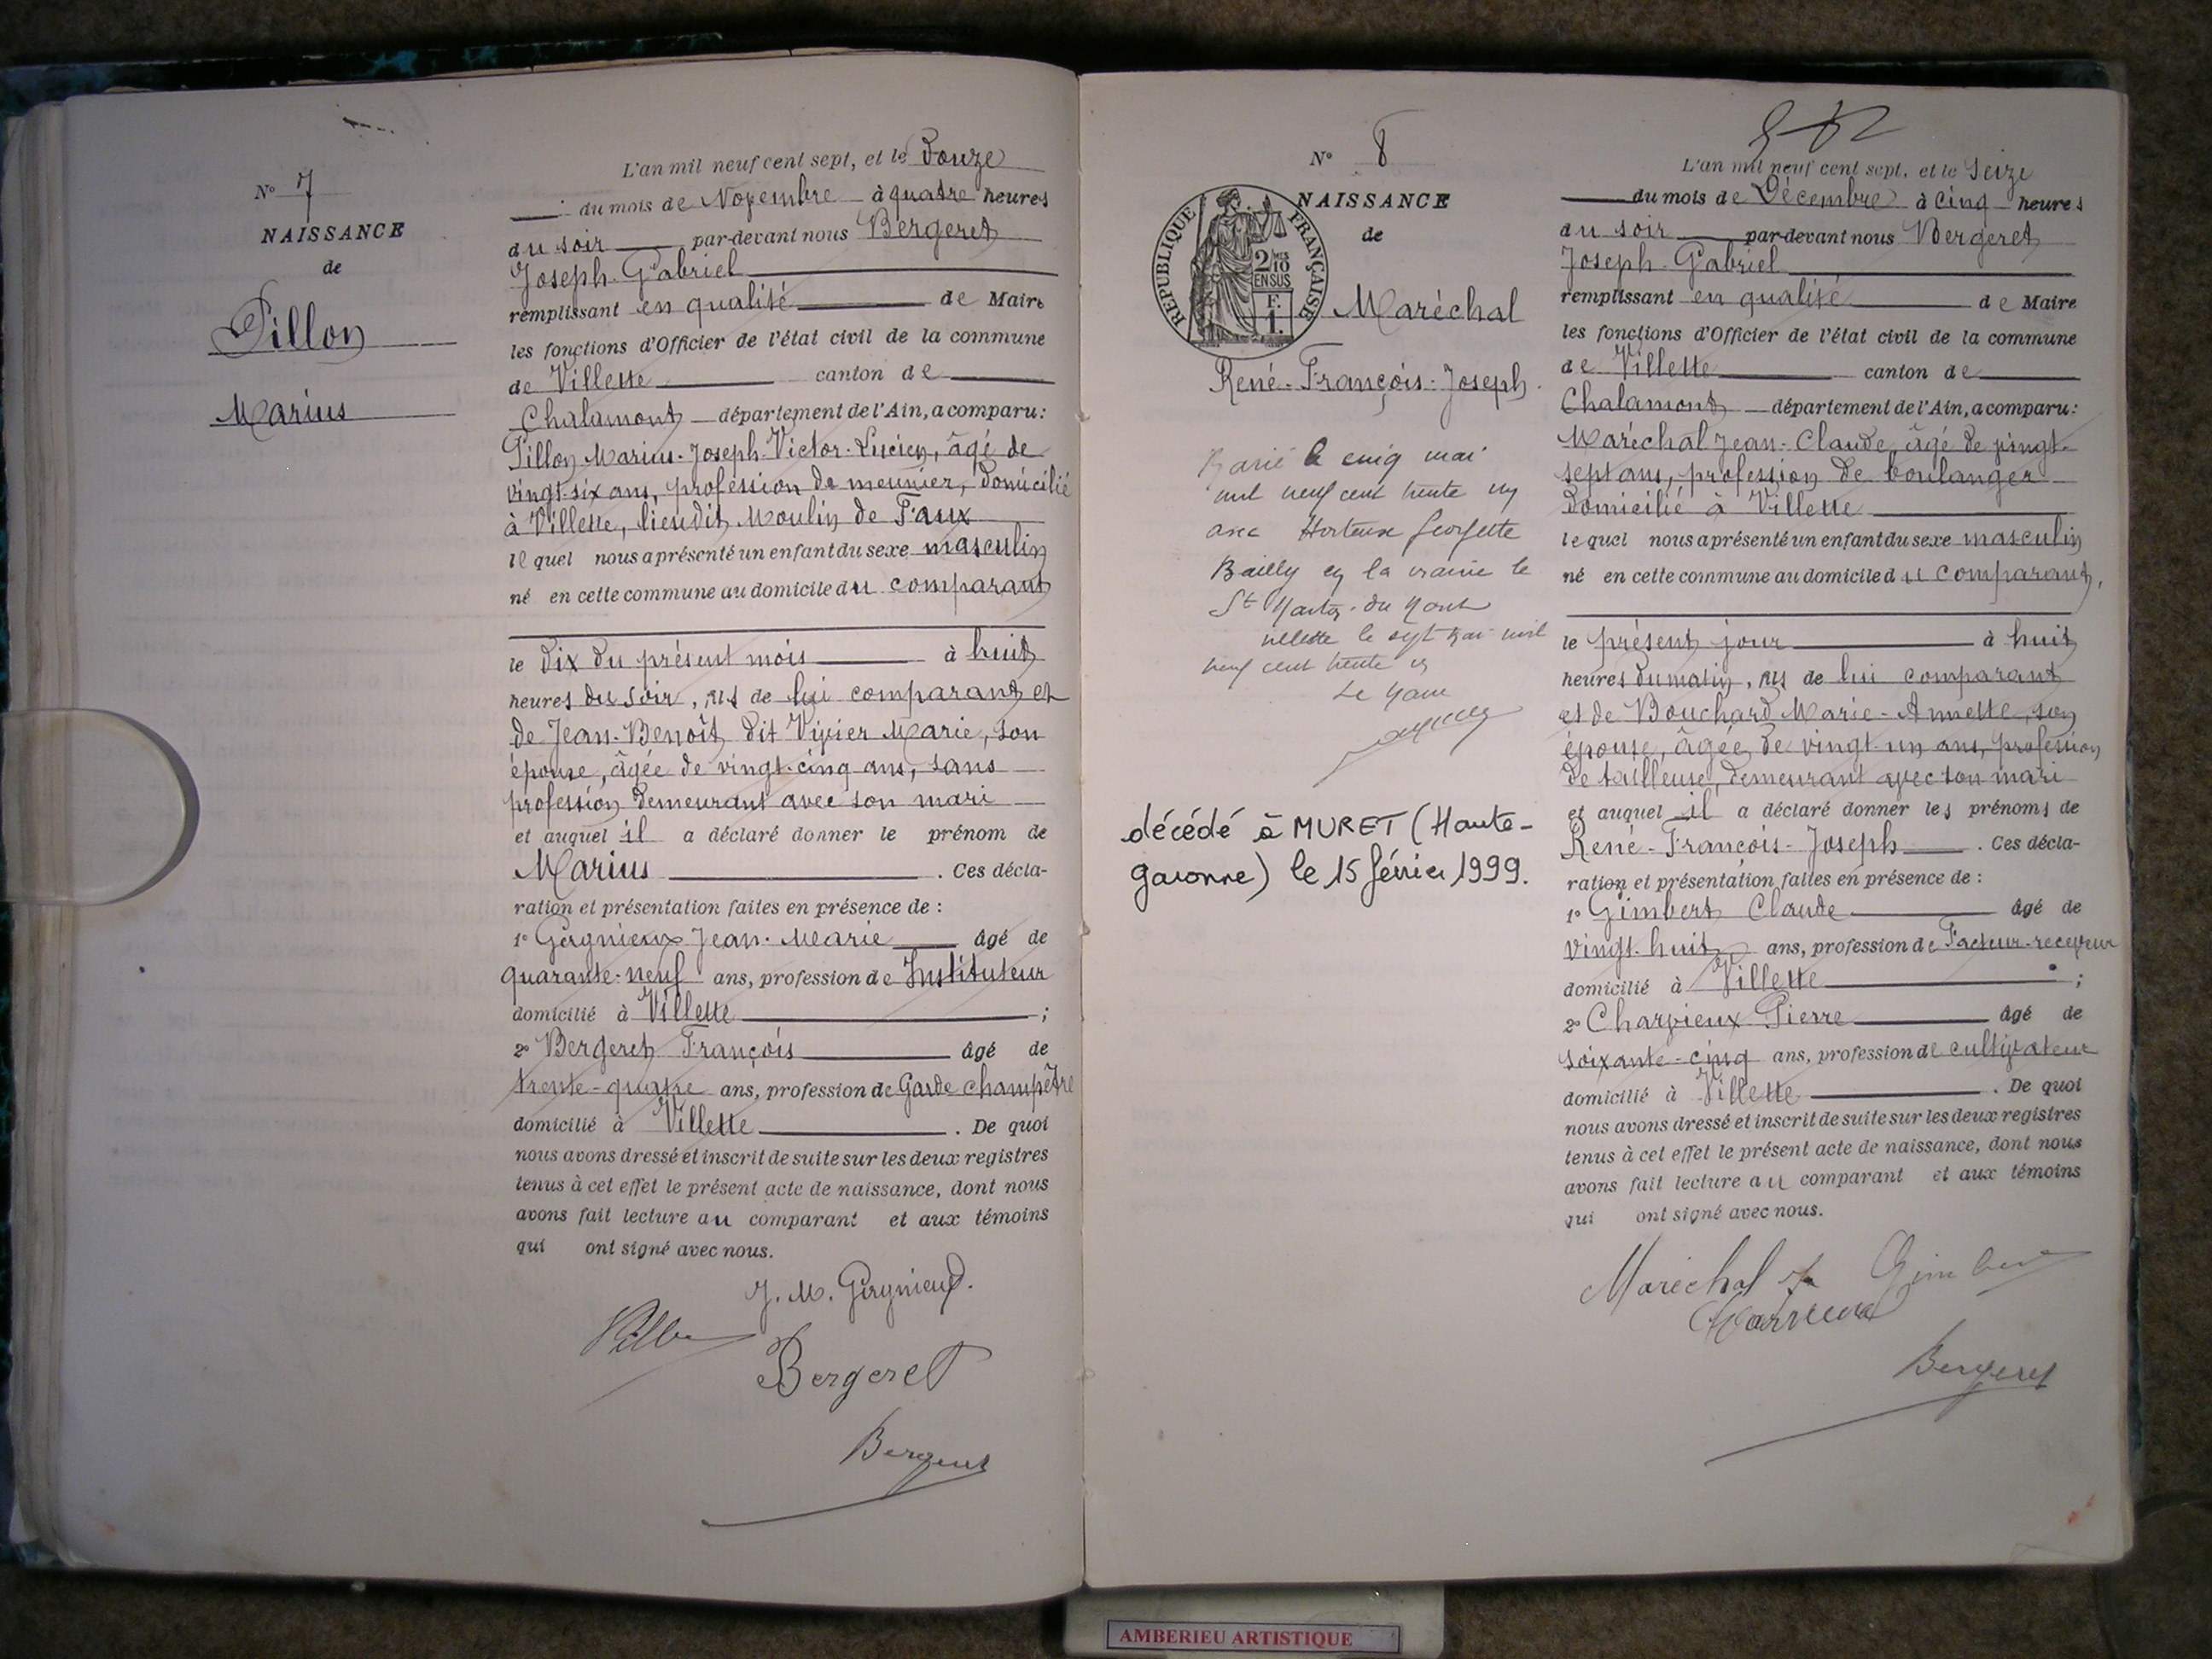 N° 7
NAISSANCE
de
Pillon
Marius
L'an mil neuf cent sept, et le Douze
du mois de Novembre à quatre heures
du soir par-devant nous Bergeret
Joseph-Gabriel
remplissant en qualité de Maire
les fonctions d'Officier de l'état civil de la commune
de Villette canton de
Chalamont département de l'Ain, a comparu:
Pillon Marius-Joseph-Victor-Lucien, âgé de
vingt-six ans, profession de meunier, domicilié
à Villette, lieudit Moulin de Faux
lequel nous a présenté un enfant du sexe masculin
né en cette commune au domicile du comparant
le dix du présent mois à huit
heures du soir, fils de lui comparant et
de Jean-Benoît dit Vivier Marie, son
épouse, âgée de vingt-cinq ans, sans
profession demeurant avec son mari
et auquel il a déclaré donner le prénom de
Marius. Ces décla-
ration et présentation faites en présence de :
1° Gergnieux Jean-Marie âgé de
quarante-neuf ans, profession de Instituteur
domicilié à Villette ;
2° Bergeret François âgé de
trente-quatre ans, profession de Garde champêtre
domicilié à Villette. De quoi
nous avons dressé et inscrit de suite sur les deux registres
tenus à cet effet le présent acte de naissance, dont nous
avons fait lecture au comparant et aux témoins
qui ont signé avec nous.
J. M. Gergnieux.
Pillon
Bergeret
Bergeret
N° 8
NAISSANCE
de
RÉPUBLIQUE FRANÇAISE
2/10 EN SUS
F.
1.
Maréchal
René-François-Joseph
Marié le cinq mai
mil neuf cent trente un
avec Hortense Georgette
Bailly en la mairie de
St Martin-du-Mont
Villette le sept mai mil
neuf cent trente un
Le Maire
décédé à MURET (Haute-
garonne) le 15 février 1999.
L'an mil neuf cent sept, et le Seize
du mois de Décembre à cinq heures
du soir par-devant nous Bergeret
Joseph-Gabriel
remplissant en qualité de Maire
les fonctions d'Officier de l'état civil de la commune
de Villette canton de
Chalamont département de l'Ain, a comparu:
Maréchal Jean-Claude, âgé de vingt-
sept ans, profession de boulanger
domicilié à Villette
lequel nous a présenté un enfant du sexe masculin
né en cette commune au domicile du comparant,
le présent jour à huit
heures du matin, fils de lui comparant
et de Bouchard Marie-Annette, son
épouse, âgée de vingt-un ans, profession
de tailleuse, demeurant avec son mari
et auquel il a déclaré donner les prénoms de
René-François-Joseph. Ces décla-
ration et présentation faites en présence de :
1° Gimbert Claude âgé de
vingt-huit ans, profession de Facteur-receveur
domicilié à Villette ;
2° Charvieux Pierre âgé de
soixante-cinq ans, profession de cultivateur
domicilié à Villette. De quoi
nous avons dressé et inscrit de suite sur les deux registres
tenus à cet effet le présent acte de naissance, dont nous
avons fait lecture au comparant et aux témoins
qui ont signé avec nous.
Maréchal Gimbert
Charvieux
Bergeret
AMBERIEU ARTISTIQUE